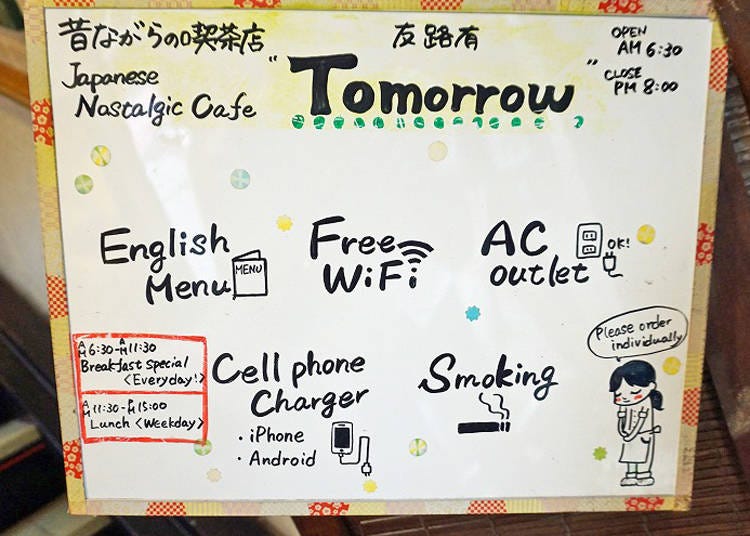 昔ながらの喫茶店
Japanese
Nastalgic Cafe
友路有
"Tomorrow"
OPEN
AM 6:30
CLOSE
PM 8:00
English
Menu
MENU
Free
WiFi
AC
outlet
OK!
AM 6:30-AM 11:30
Breakfast special
<Everyday!>
AM 11:30-PM 15:00
Lunch <Weekday>
Cell phone
Charger
・iPhone
・Android
Smoking
Please order
individually